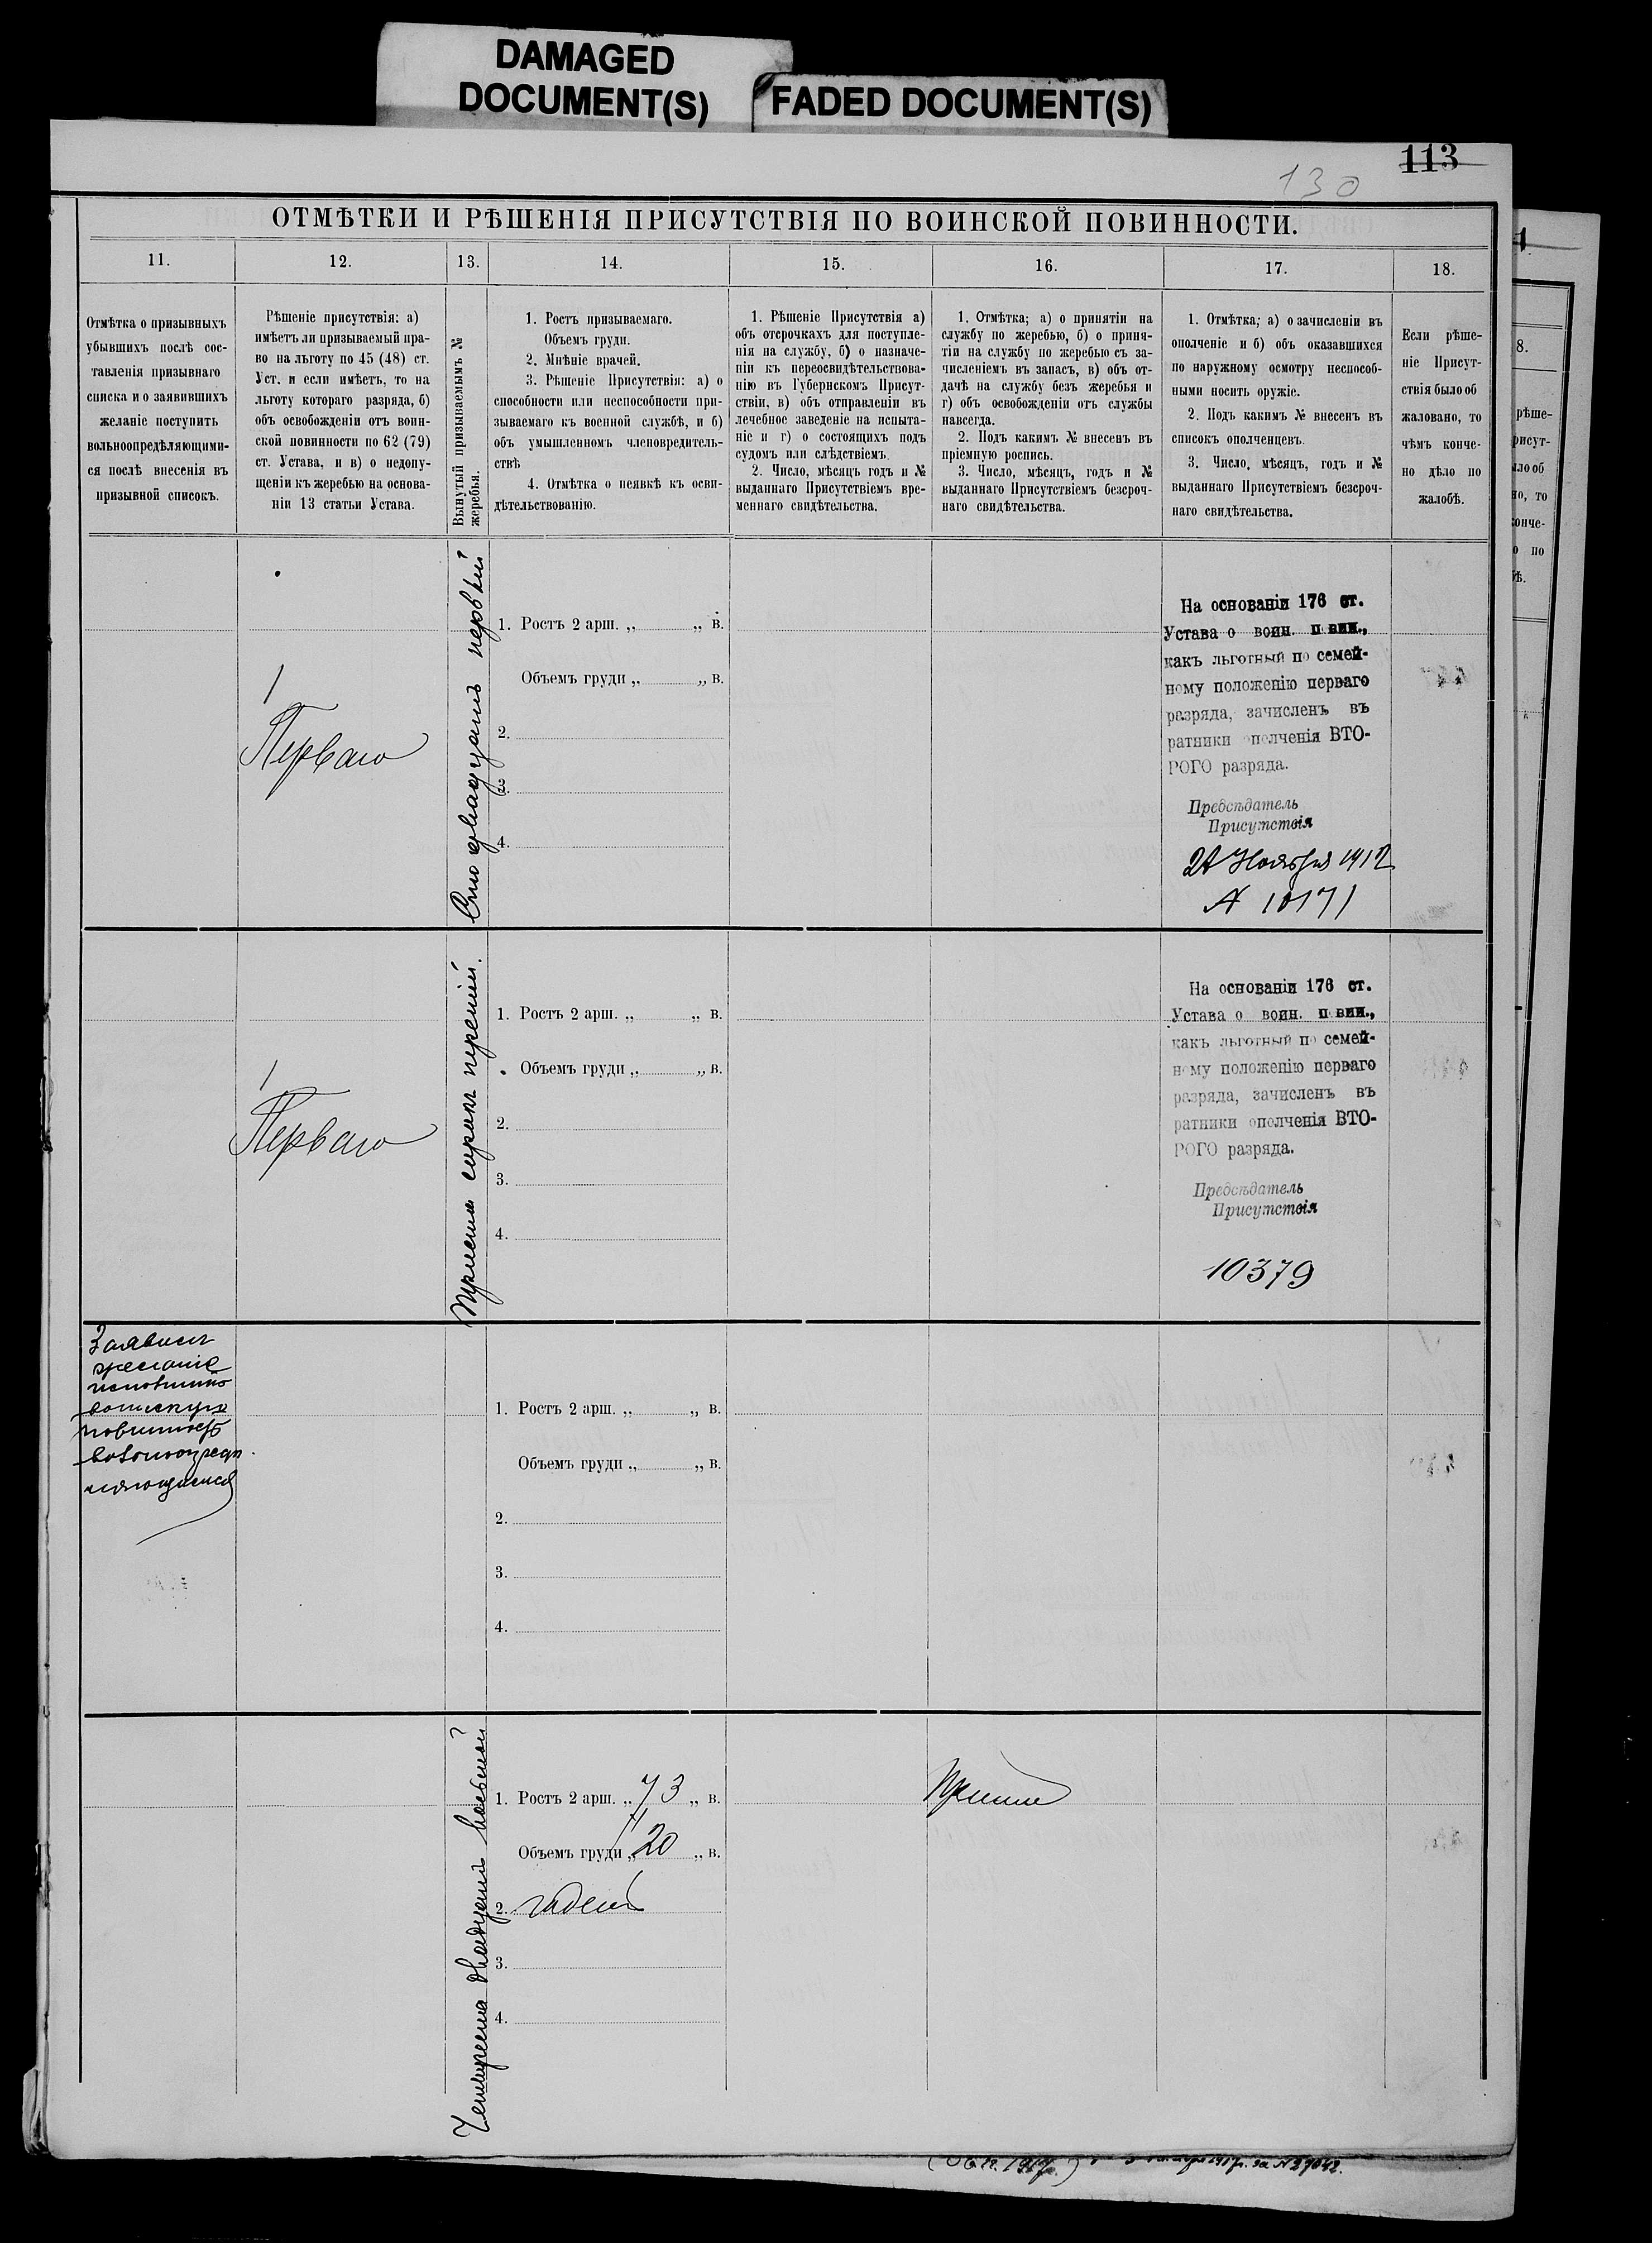 DAMAGED
DOCUMENT(S)
FADED DOCUMENT(S)
113
130
ОТМѢТКИ И РѢШЕНІЯ ПРИСУТСТВІЯ ПО ВОИНСКОЙ ПОВИННОСТИ.
11.
12.
13.
14.
15.
16.
17.
18.
Отмѣтка о призывныхъ
убывшихъ послѣ сос-
тавленія призывнаго
списка и о заявившихъ
желаніе поступить
вольноопредѣляющими-
ся послѣ внесенія въ
призывной списокъ.
Рѣшеніе присутствія: а)
имѣетъ ли призываемый пра-
во на льготу по 45 (48) ст.
Уст. и если имѣетъ, то на
льготу котораго разряда, б)
объ освобожденіи отъ воин-
ской повинности по 62 (79)
ст. Устава, и в) о недопу-
щеніи къ жеребью на основа-
ніи 13 статьи Устава.
Вынутый призываемымъ №
жеребья.
1. Ростъ призываемаго.
Объемъ груди.
2. Мнѣніе врачей.
3. Рѣшеніе Присутствія: а) о
способности или неспособности при-
зываемаго къ военной службѣ, и б)
объ умышленномъ членовредитель-
ствѣ
4. Отмѣтка о неявкѣ къ осви-
дѣтельствованію.
1. Рѣшеніе Присутствія а)
объ отсрочкахъ для поступле-
нія на службу, б) о назначе-
ніи къ переосвидѣтельствова-
нію въ Губернскомъ Присут-
ствіи, в) объ отправленіи въ
лечебное заведеніе на испыта-
ніе и г) о состоящихъ подъ
судомъ или слѣдствіемъ.
2. Число, мѣсяцъ годъ и №
выданнаго Присутствіемъ вре-
меннаго свидѣтельства.
1. Отмѣтка; а) о принятіи на
службу по жеребью, б) о приня-
тіи на службу по жеребью съ за-
численіемъ въ запасъ, в) объ от-
дачѣ на службу безъ жеребья и
г) объ освобожденіи отъ службы
навсегда.
2. Подъ какимъ № внесенъ въ
пріемную роспись.
3. Число, мѣсяцъ, годъ и №
выданнаго Присутствіемъ безсроч-
наго свидѣтельства.
1. Отмѣтка; а) о зачисленіи въ
ополченіе и б) объ оказавшихся
по наружному осмотру неспособ-
ными носить оружіе.
2. Подъ какимъ № внесенъ въ
списокъ ополченцевъ.
3. Число, мѣсяцъ, годъ и №
выданнаго Присутствіемъ безсроч-
наго свидѣтельства.
Если рѣше-
ніе Присут-
ствія было об
жаловано, то
чѣмъ конче-
но дѣло по
жалобѣ.
1
Перваго
Сто двадцать первый
1. Ростъ 2 арш. „ „ в.
Объемъ груди „ „ в.
2.
3.
4.
На основаніи 176 ст.
Устава о воин. повин.,
какъ льготный по семей-
ному положенію перваго
разряда, зачисленъ въ
ратники ополченія ВТО-
РОГО разряда.
Предсѣдатель
Присутствія
21 Ноября 1912
№ 10171
1
Перваго
Триста сорокъ третій.
1. Ростъ 2 арш. „ „ в.
Объемъ груди „ „ в.
2.
3.
4.
На основаніи 176 ст.
Устава о воин. повин.,
какъ льготный по семей-
ному положенію перваго
разряда, зачисленъ въ
ратники ополченія ВТО-
РОГО разряда.
Предсѣдатель
Присутствія
10379
Заявилъ
желаніе
исполнить
воинскую
повинность
вольноопредѣ
ляющимся
1. Ростъ 2 арш. „ „ в.
Объемъ груди „ „ в.
2.
3.
4.
Четыреста двадцать восьмой
1. Ростъ 2 арш. „ 73 „ в.
Объемъ груди „ 20 „ в.
2. годенъ
3.
4.
Принятъ
8.
рѣше-
рисут-
ыло об
но, то
конче-
о по
бѣ.
1917г. за № 27042.